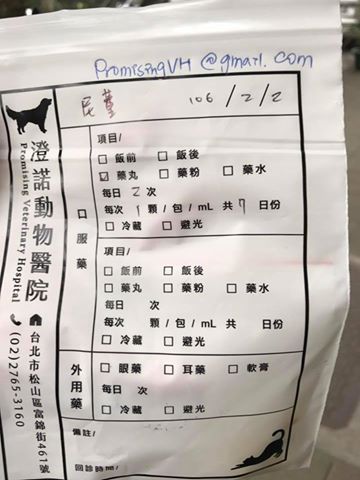 PromisingVH @gmail.com
106/2/2
澄諾動物醫院
Promising Veterinary Hospital
台北市松山區富錦街461號
(02)2765-3160
口服藥
項目/
□ 飯前 □ 飯後
☑ 藥丸 □ 藥粉 □ 藥水
每日 2 次
每次 1 顆/包/mL 共 7 日份
□ 冷藏 □ 避光
項目/
□ 飯前 □ 飯後
□ 藥丸 □ 藥粉 □ 藥水
每日 次
每次 顆/包/mL 共 日份
□ 冷藏 □ 避光
外用藥
□ 眼藥 □ 耳藥 □ 軟膏
每日 次
□ 冷藏 □ 避光
備註/
回診時間/